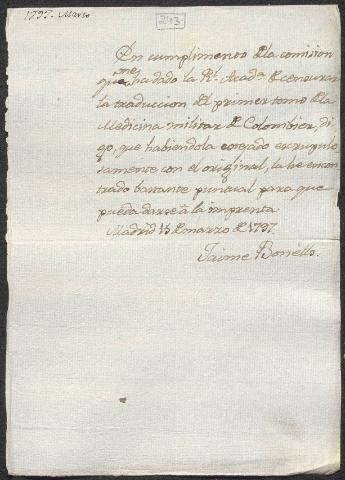 1797. Marzo
243
En cumplimento de la comision
que me ha dado la Rl. Acada. de censurar
la traduccion del primer tomo de la
Medicina militar de Colombier, di-
go, que habiendola cotejado escrupulo-
samente con el original, la he encon-
trado bastante puntual para que
pueda darse â la imprenta.
Madrid 15 de marzo de 1797.
Jaime Bonells.